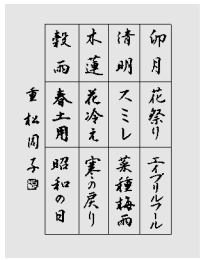 卯月
花祭り
エイプリルフール
清明
スミレ
菜種梅雨
木蓮
花冷え
寒の戻り
穀雨
春土用
昭和の日
重松周子